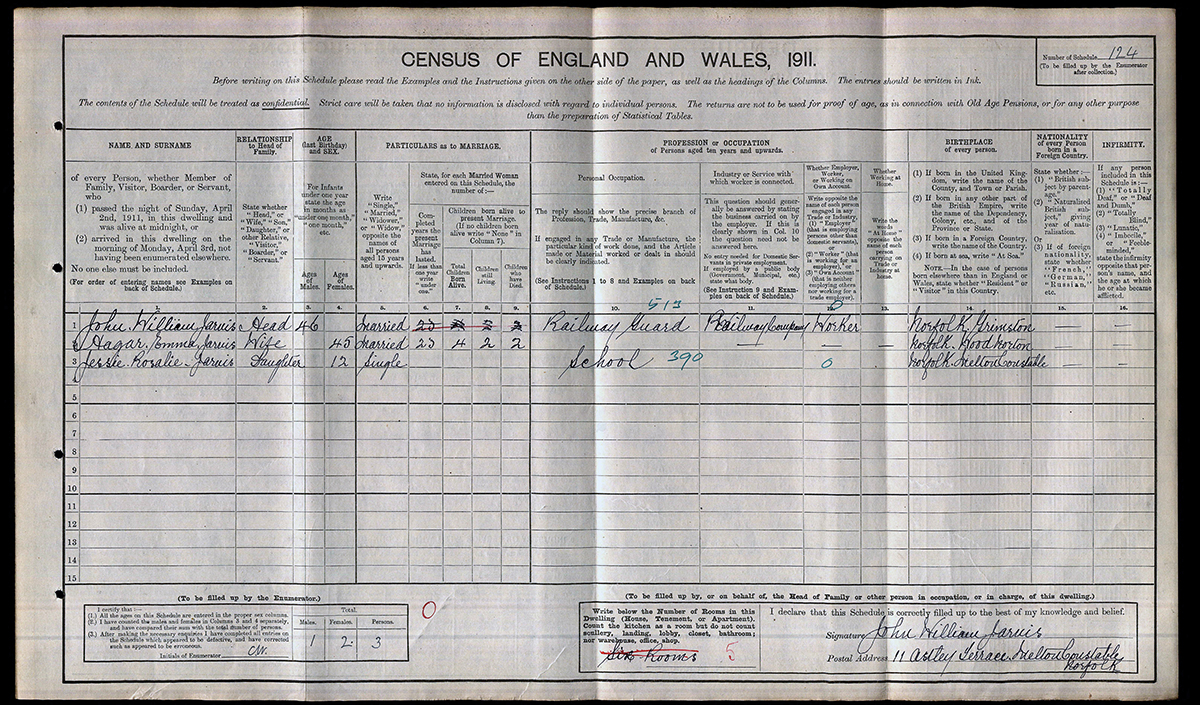 CENSUS OF ENGLAND AND WALES, 1911.
Number of Schedule 124
(To be filled up by the Enumerator
after collection.)
Before writing on this Schedule please read the Examples and the Instructions given on the other side of the paper, as well as the headings of the Columns. The entries should be written in Ink.
The contents of the Schedule will be treated as confidential. Strict care will be taken that no information is disclosed with regard to individual persons. The returns are not to be used for proof of age, as in connection with Old Age Pensions, or for any other purpose
than the preparation of Statistical Tables.
NAME AND SURNAME
of every Person, whether Member of
Family, Visitor, Boarder, or Servant,
who
(1) passed the night of Sunday, April
2nd, 1911, in this dwelling and
was alive at midnight, or
(2) arrived in this dwelling on the
morning of Monday, April 3rd, not
having been enumerated elsewhere.
No one else must be included.
(For order of entering names see Examples on
back of Schedule.)
RELATIONSHIP
to Head of
Family.
State whether
"Head," or
"Wife," "Son,"
"Daughter," or
other Relative,
"Visitor,"
"Boarder," or
"Servant."
AGE
(last Birthday)
and SEX.
For Infants
under one year
state the age
in months as
"under one month,"
"one month,"
etc.
Ages
of
Males.
Ages
of
Females.
PARTICULARS as to MARRIAGE.
Write
"Single,"
"Married,"
"Widower,"
or "Widow,"
opposite the
names of
all persons
aged 15 years
and upwards.
State, for each Married Woman
entered on this Schedule, the
number of:—
Completed
years the
present
Marriage
has
lasted.
If less than
one year
write
"under
one."
Children born alive to
present Marriage.
(If no children born
alive write "None" in
Column 7).
Total
Children
Born
Alive.
Children
still
Living.
Children
who
have
Died.
PROFESSION or OCCUPATION
of Persons aged ten years and upwards.
Personal Occupation.
The reply should show the precise branch of
Profession, Trade, Manufacture, &c.
If engaged in any Trade or Manufacture, the
particular kind of work done, and the Article
made or Material worked or dealt in should
be clearly indicated.
(See Instructions 1 to 8 and Examples on back
of Schedule.)
Industry or Service with
which worker is connected.
This question should generally
be answered by stating
the business carried on by
the employer. If this is
clearly shown in Col. 10
the question need not be
answered here.
No entry needed for Domestic Servants
in private employment.
If employed by a public body
(Government, Municipal, etc.)
state what body.
(See Instruction 9 and Examples
on back of Schedule.)
Whether Employer,
Worker,
or Working on
Own Account.
Write opposite the
name of each person
engaged in any
Trade or Industry,
(1) "Employer"
(that is employing
persons other than
domestic servants),
or
(2) "Worker" (that
is working for an
employer), or
(3) "Own Account"
(that is neither
employing others
nor working for a
trade employer).
Whether
Working at
Home.
Write the
words
"At Home"
opposite the
name of each
person
carrying on
Trade or
Industry at
home.
BIRTHPLACE
of every person.
(1) If born in the United Kingdom,
write the name of the
County, and Town or Parish.
(2) If born in any other part of
the British Empire, write
the name of the Dependency,
Colony, etc., and of the
Province or State.
(3) If born in a Foreign Country,
write the name of the Country.
(4) If born at sea, write "At Sea."
NOTE.—In the case of persons
born elsewhere than in England or
Wales, state whether "Resident" or
"Visitor" in this Country.
NATIONALITY
of every Person
born in a
Foreign Country.
State whether:—
(1) "British subject
by parentage."
(2) "Naturalised
British subject,"
giving
year of naturalisation.
Or
(3) If of foreign
nationality,
state whether
"French,"
"German,"
"Russian,"
etc.
INFIRMITY.
If any person
included in this
Schedule is:—
(1) "Totally
Deaf," or "Deaf
and Dumb,"
(2) "Totally
Blind,"
(3) "Lunatic,"
(4) "Imbecile,"
or "Feeble-minded,"
state the infirmity
opposite that person's
name, and
the age at which
he or she became
afflicted.
1. 2. 3. 4. 5. 6. 7. 8. 9. 10. 11. 12. 13. 14. 15. 16.
513
1 John William Jarvis Head 46 Married 23 Railway Guard Railway Company Worker Norfolk Grimston — —
2 Hagar Emma Jarvis Wife 45 Married 23 4 2 2 — — — — Norfolk Wood Norton — —
3 Jessie Rosalie Jarvis Daughter 12 Single School 390 0 Norfolk Melton Constable — —
4
5
6
7
8
9
10
11
12
13
14
15
(To be filled up by the Enumerator.)
I certify that:—
(1.) All the ages on this Schedule are entered in the proper sex columns.
(2.) I have counted the males and females in Columns 3 and 4 separately,
and have compared their sum with the total number of persons.
(3.) After making the necessary enquiries I have completed all entries on
the Schedule which appeared to be defective, and have corrected
such as appeared to be erroneous.
Initials of Enumerator
Total.
Males. Females. Persons.
1 2 3
0
(To be filled up by, or on behalf of, the Head of Family or other person in occupation, or in charge, of this dwelling.)
Write below the Number of Rooms in this
Dwelling (House, Tenement, or Apartment).
Count the kitchen as a room but do not count
scullery, landing, lobby, closet, bathroom;
nor warehouse, office, shop.
Six Rooms 5
I declare that this Schedule is correctly filled up to the best of my knowledge and belief.
Signature John William Jarvis
Postal Address 11 Astley Terrace Melton Constable
Norfolk